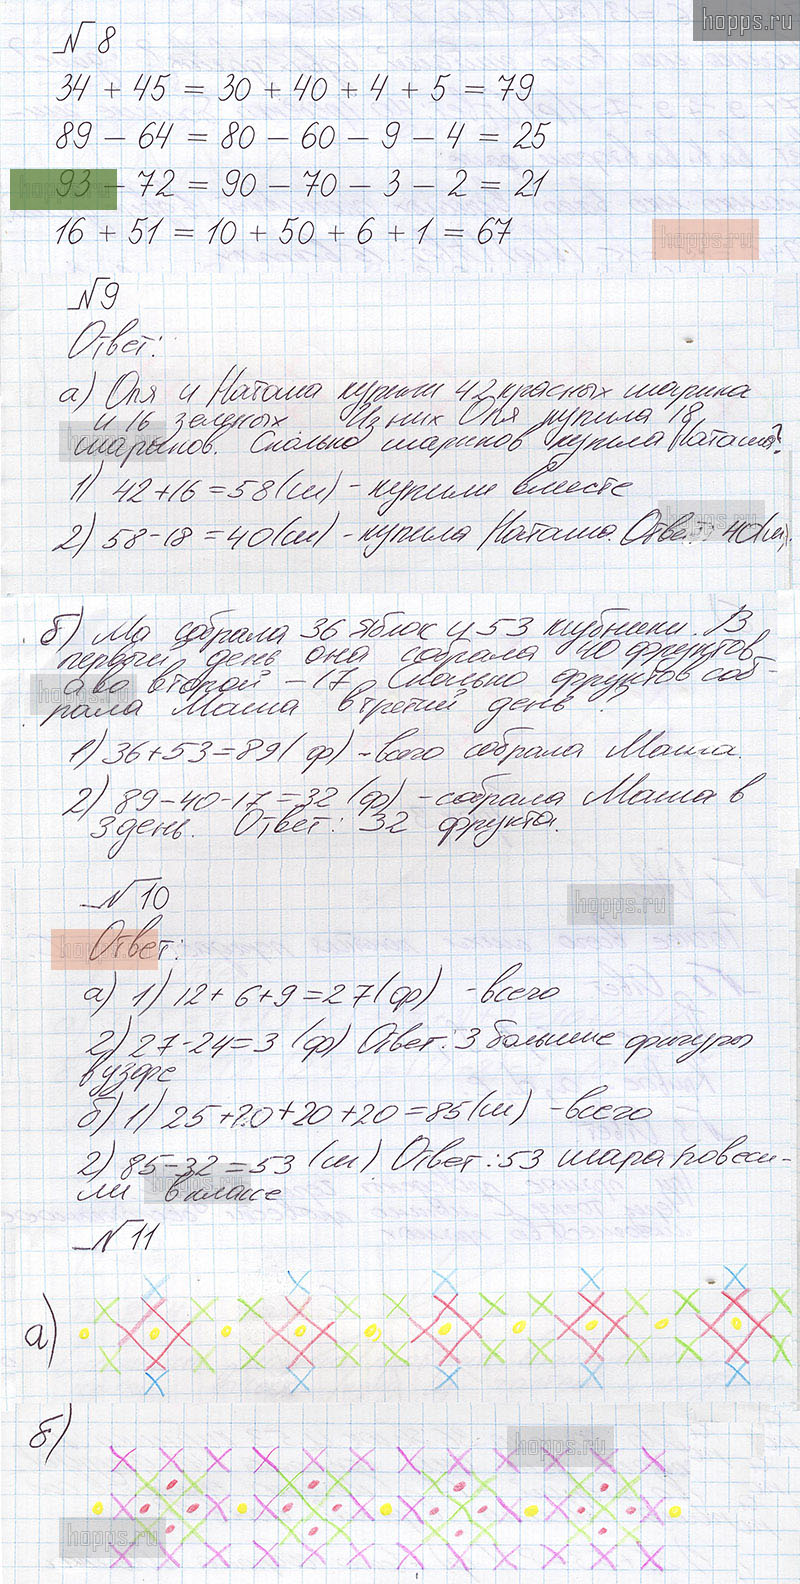 hopps.ru
№ 8
34 + 45 = 30 + 40 + 4 + 5 = 79
89 - 64 = 80 - 60 - 9 - 4 = 25
93 - 72 = 90 - 70 - 3 - 2 = 21
16 + 51 = 10 + 50 + 6 + 1 = 67
hopps.ru
№ 9
Ответ:
а) Оля и Наташа купили 42 красных шарика
и 16 зеленых Из них Оля купила 18
шариков. Сколько шариков купила Наташа?
1) 42+16=58(ш) - купили вместе
2) 58-18=40(ш) - купила Наташа. Ответ: 40(ш).
б) Ма собрала 36 яблок и 53 клубники. В
первый день она собрала 40 фруктов,
а во второй - 17. Сколько фруктов соб-
рала Маша в третий день?
1) 36+53=89(ф) - всего собрала Маша.
2) 89-40-17=32(ф) - собрала Маша в
3 день. Ответ: 32 фрукта.
№ 10
hopps.ru
Ответ:
а) 1) 12+6+9=27(ф) - всего
2) 27-24=3(ф) Ответ: 3 большие фигуры
в узоре
б) 1) 25+20+20+20=85(ш) - всего
2) 85-32=53(ш) Ответ: 53 шара повеси-
ли в классе
№ 11
а)
б)
hopps.ru
hopps.ru